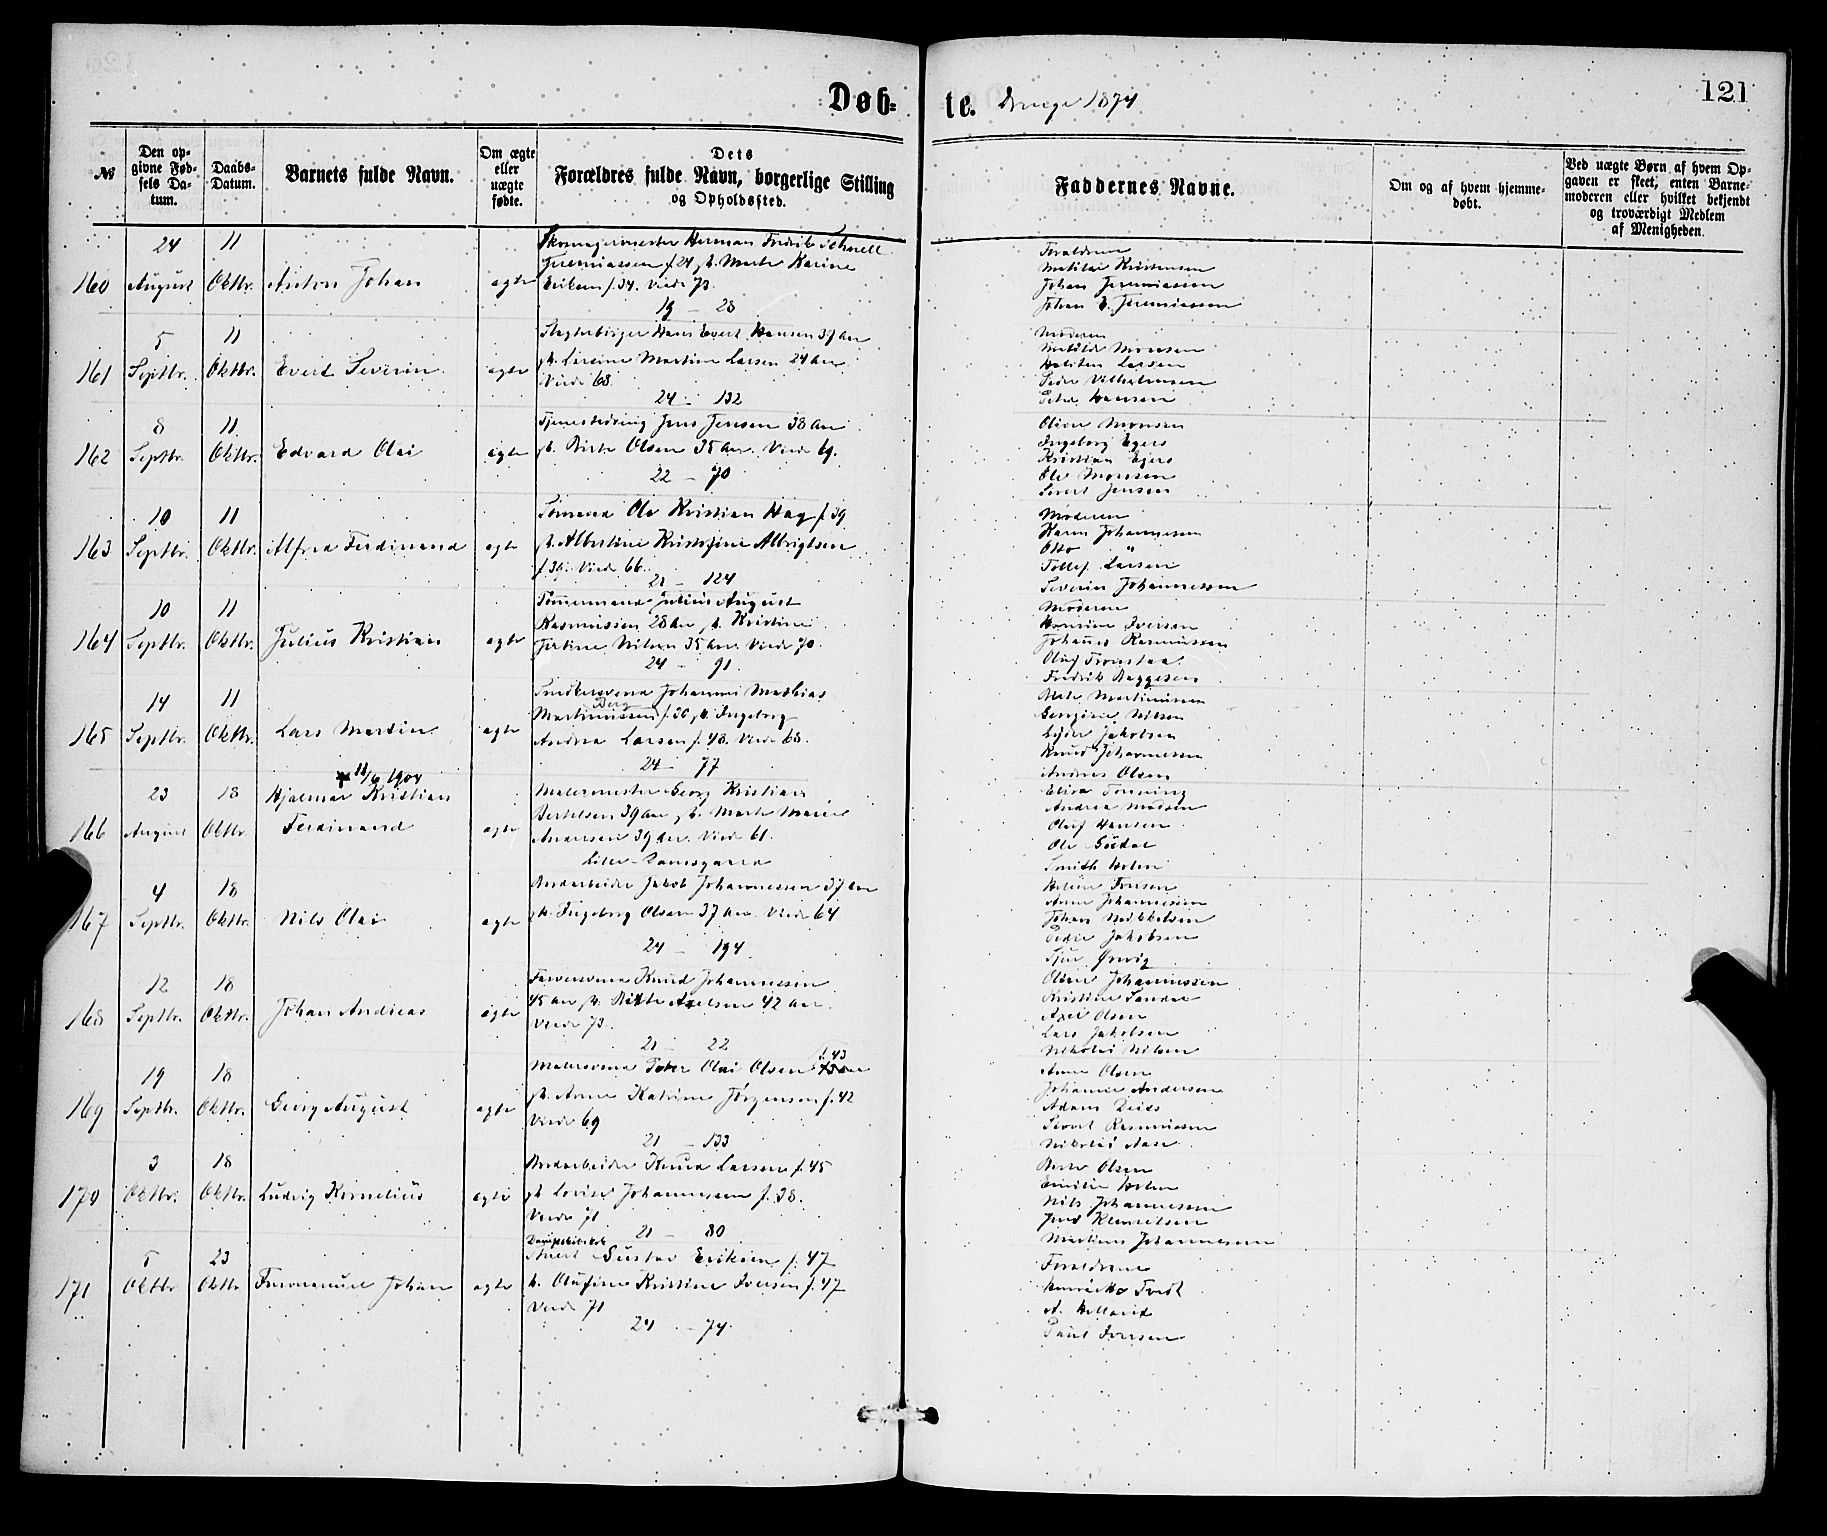 Døb=
te. Drenge 1874
121
№
Den op-
givne Fød-
sels Da-
tum.
Daabs-
Datum.
Barnets fulde Navn.
Om ægte
eller
uægte
fødte.
Dets
Forældres fulde Navn, borgerlige Stilling
og Opholdssted.
Faddernes Navne.
Om og af hvem hjemme-
døbt.
Ved uægte Børn af hvem Op-
gaven er skeet, enten Barne-
moderen eller hvilket bekjendt
og troværdigt Medlem
af Menigheden.
160
24
August
11
Oktbr.
Anton Johan
ægte
Skomagermester Herman Fredrik
Jeremiassen f. 24 h. Marte Karine
Eriksen f. 34. Viede 73.
19 - 28
Forældrene
Matilde Kristensen
Johan Jeremiassen
Johan E. Jeremiassen
161
5
Septbr.
11
Oktbr.
Evert Severin
ægte
Slagterborger Hans Evert Hansen 37 Aar
h. Lovine Martine Larsen 24 Aar
Viede 68.
24 - 132
Moderen
Matilde Monsen
Larsen
Vilhelmsen
Peder Hansen
162
8
Septbr.
11
Oktbr.
Edvard Olai
ægte
Tjenestedreng Jens Jensen 38 Aar
h. Birte Olsen 35 Aar. Viede 69.
22 - 70
Oline Monsen
Ingeborg Egers
Kristian Egers
Ole Monsen
Sivert Jensen
163
10
Septbr.
11
Oktbr.
Alfred Ferdinand
ægte
Tømmermand Ole Kristian Hag f. 39
h. Albertine Kristofine Albrigtsen
f. 36. Viede 66.
21 - 124
Moderen
Karen Johannesen
Otto "
Tollef Larsen
Severin Johannessen
164
10
Septbr.
11
Oktbr.
Julius Kristian
ægte
Tømmermand Julius August
Rasmussen 28 Aar h. Kristine
Jertine Nilsen 35 Aar. Viede 70.
24 - 91.
Moderen
Iversen
Johannes Rasmussen
Oluf Tronstad
Fredrik Baggesen
165
14
Septbr.
11
Oktbr.
Lars Martin
ægte
Snedkersvend Johannes Mathias
Berg
Martinussen f. 30 h. Ingeborg
Andrea Larsen f. 48. Viede 68.
24 - 77
Marte Martinussen
Georgine Nilsen
Jakobsen
Knud Johannessen
Andreas Olsen
166
23
August
18
Oktbr.
11/6 1904
Hjalmar Kristian
Ferdinand
ægte
Malermester Georg Kristian
Bertelsen 39 Aar h. Marte Marie
Andersen 39 Aar. Viede 61.
Lille-Damsgaard
Elisa Tonning
Andrea Madsen
Oluf Hansen
Ole
Smith Holm
167
4
Septbr.
18
Oktbr.
Nils Olai
ægte
Andarbeider Jakob Johannessen 37 Aar
h. Ingeborg Olsen 37 Aar. Viede 64
24 - 194
Helene Tonsen
Anne Johannesen
Johan Mikkelsen
Peder Jakobsen
168
12
Septbr.
18
Oktbr.
Johan Andreas
ægte
Farversvend Knud Johannessen
45 Aar h. Birthe Axelsen 42 Aar.
Viede 73.
21 - 22
Oline Johannessen
Kristine Sandal
Axel Olsen
Lars Jakobsen
Nikolai Nilsen
169
19
Septbr.
18
Oktbr.
Georg August
ægte
Malersvend Peter Olai Olsen f. 43
h. Anne Katrine Jørgensen f. 42
Viede 69
21 - 133
Anne Olsen
Johanne Andersen
Adam
Sivert Rasmussen
Nikolai Aase
170
3
Oktbr.
18
Oktbr.
Ludvig Kornelius
ægte
Andarbeider Knud Larsen f. 45
h. Lovise Johannessen f. 38.
Viede 71
21 - 80
Berte Olsen
Emilie Holm
Nils Johannessen
Jens Klemetsen
Martinus Johannessen
171
5
Oktbr.
23
Oktbr.
Immanuel Johan
ægte
Gustav Eriksen f. 47
h. Olufine Kristine Iversen f. 47
Viede 71
24 - 74
Forældrene
Henriette Tvedt
A. Helland
Paul Iversen